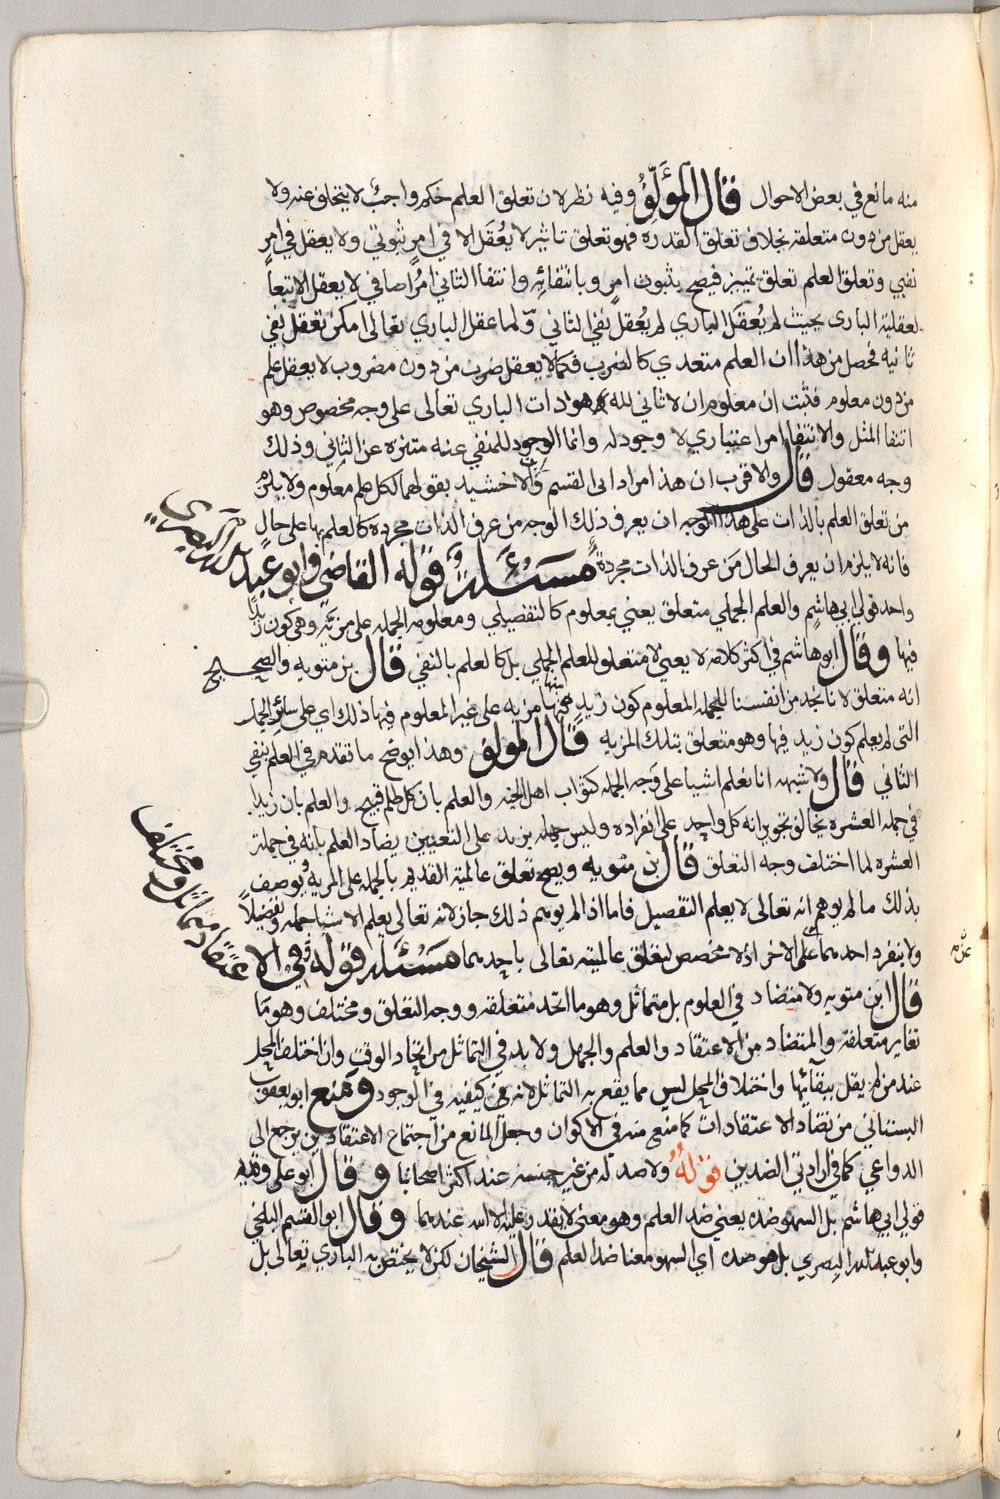 منه مانع في بعض الاحوال قال المؤلف وفيه نظر لان تعلق العلم حكم واجب لا يتخلف عنه ولا
يعقل من دون متعلقه بخلاف تعلق القدرة فهو تعلق تاثير لا يعقل الا في امر ثبوتي ولا يعقل في امر
نفيي وتعلق العلم تعلق تمييز فيصح بثبوت امر وبانتفائه وانتفا الثاني امر اضافي لا يعقل الا تبعا
لعقلية الباري بحيث لو لم يعقل الباري لم يعقل نفي الثاني ولما عقل الباري تعالى امكن تعقل نفي
ثانيه فحصل من هذا ان العلم متعدي كالضرب فكما لا يعقل ضرب من دون مضروب لا يعقل علم
من دون معلوم فثبت ان معلوم ان لا ثاني لله هو ذات الباري تعالى على وجه مخصوص وهو
انتفا المثل والانتفا امر اعتباري لا وجود له وانما الوجود للمنفي عنه متنزه عن الثاني وذلك
وجه معقول قال والاقرب ان هذا مراد ابي القسم والاخشيد بقولهما لكل علم معلوم ولا يلزم
من تعلق العلم بالذات على هذا الوجه ان يعرف ذلك الوجه من عرف الذات مجردة كالعلم بها على حال
فانه لا يلزم ان يعرف الحال من عرف الذات مجردة مسئلة قوله القاضي وابو عبدالله البصري
واحد قولي ابي هاشم والعلم الجملي متعلق يعني بمعلوم كالتفصيلي ومعلومه الجملة على مزية وهي كون زيد
فيها وقال ابو هاشم في اكثر كلامه لا يعني لا متعلق للعلم الجملي بل كالعلم بالنفي قال بن متويه والصحيح
انه متعلق لانا نجد من انفسنا للجملة المعلوم كون زيد فيها مزية على غير المعلوم فيها ذلك اي على سائر الجمل
التي لم يعلم كون زيد فيها وهو متعلق بتلك المزية قال المولف وهذا يوضح ما تقدم في العلم بنفي
الثاني قال ولا شبهه انا نعلم اشيا على وجه الجملة كثواب اهل الجنه والعلم بان كل ظلم قبيح والعلم بان زيدا
في جملة العشره يخالف تجويز انه كل واحد على انفراده وليس جهله بزيد على التعيين يضاد العلم بانه في جملة
العشره لما اختلف وجه التعلق قال بن متويه ويصح تعلق عالمية القديم بالجملة على المزية ويوصف
بذلك ما لم يوهم انه تعالى لا يعلم التفصيل فاما اذا لم يوهم ذلك جاز لانه تعالى يعلم الاشيا جملة وتفصيلاً
ولا ينفرد احدهما على الاخر اذ لا مخصص لتعلق عالميته تعالى باحدهما مسئلة قوله وفي الاعتقاد متماثل ومختلف
قال ابن متويه ولا متضاد في العلوم بل متماثل وهو ما اتحد متعلقه ووجه التعلق ومختلف وهو ما
تغاير متعلقه والمتضاد من الاعتقاد والعلم والجهل ولا بد في التماثل من اتحاد الوقت وان اختلف المحل
عند من لم يقل ببقائها واختلاف المحل ليس مما يقع به التماثل لانه في كيفيه في الوجود ومنع ابو يعقوب
البستاني من تضاد الاعتقادات كما منع منه في الاكوان وجعل المانع من اجتماع الاعتقادين يرجع الى
الدواعي كما في ارادتي الضدين قوله ولا ضد له من غير جنسه عند اكثر اصحابنا وقال ابو علي وقديم
قولي ابي هاشم بل السهو ضده يعني ضد العلم وهو معنى لا يقدر عليه الا الله عندهما وقال ابو القسم البلخي
وابو عبدالله البصري بل هو ضده اي السهو معنا ضد العلم قال الشيخان لكن لا يختص به الباري تعالى بل